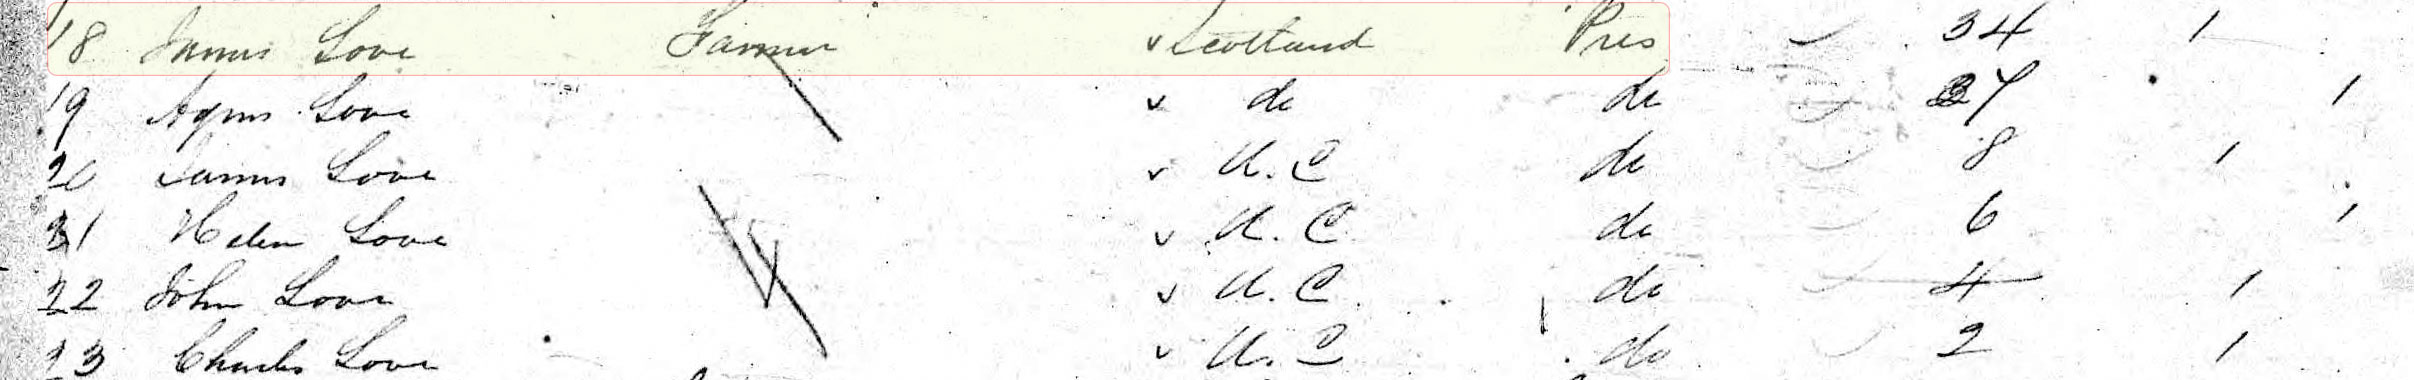 18 James Love Farmer Scotland Pres 34 1
19 Agnes Love do do 37 1
20 James Love U.C do 8 1
21 Helen Love U.C do 6 1
22 John Love U.C. do 4 1
23 Charles Love U.C do 2 1